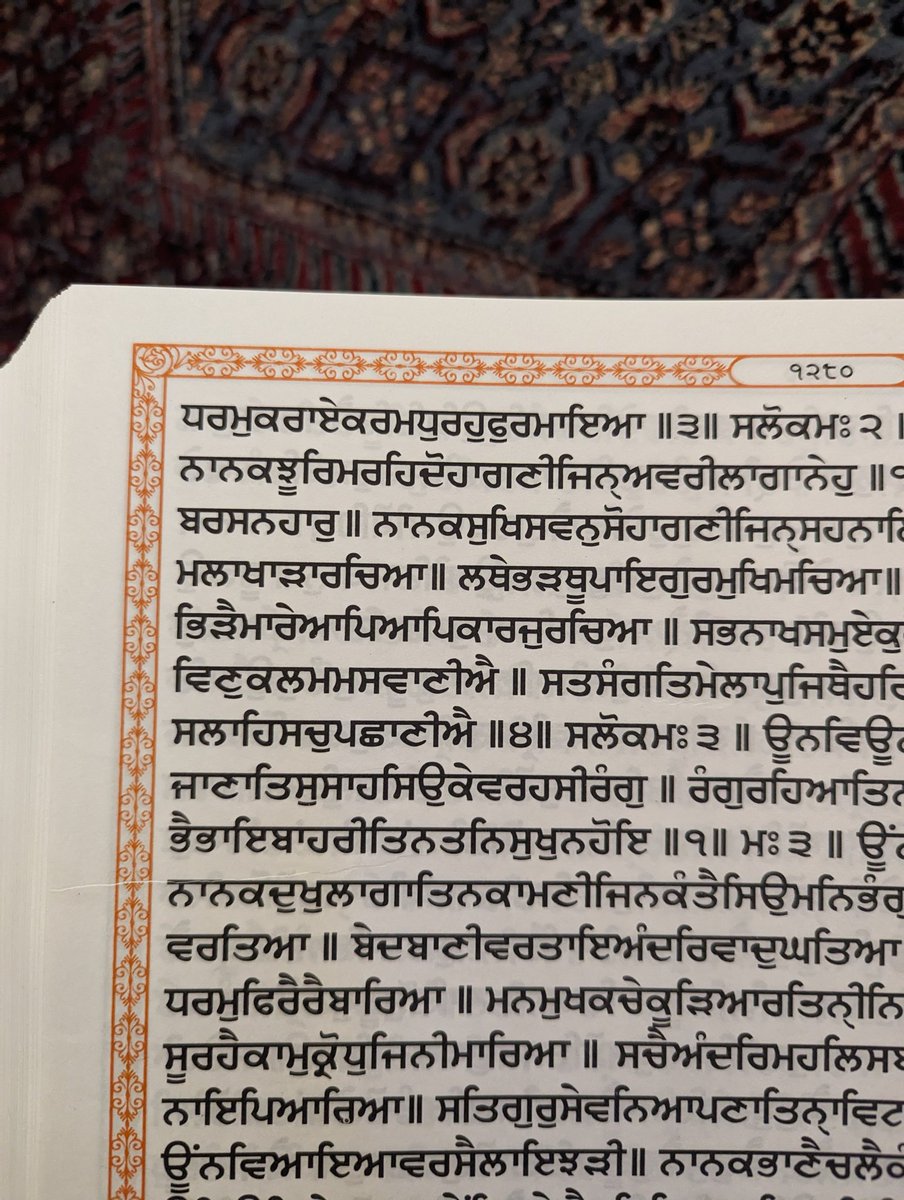 ੧੨੮੦
ਧਰਮੁਕਰਾਏਕਰਮਧੁਰਹੁਫੁਰਮਾਇਆ ॥੩॥ ਸਲੋਕਮਃ ੨ ॥
ਨਾਨਕਝੂਰਿਮਰਹਿਦੋਹਾਗਣੀਜਿਨ੍ਅਵਰੀਲਾਗਾਨੇਹੁ ॥੧
ਬਰਸਨਹਾਰੁ॥ ਨਾਨਕਸੁਖਿਸਵਨੁਸੋਹਾਗਣੀਜਿਨ੍ਸਹਨਾਲਿ
ਮਲਾਖਾੜਾਰਚਿਆ॥ ਲਥੇਭੜਥੂਪਾਇਗੁਰਮੁਖਿਮਚਿਆ॥
ਭਿੜੈਮਾਰੇਆਪਿਆਪਿਕਾਰਜੁਰਚਿਆ ॥ ਸਭਨਾਖਸਮੁਏਕੁ
ਵਿਣੁਕਲਮਮਸਵਾਣੀਐ ॥ ਸਤਸੰਗਤਿਮੇਲਾਪੁਜਿਥੈਹਰਿ
ਸਲਾਹਿਸਚੁਪਛਾਣੀਐ ॥੪॥ ਸਲੋਕਮਃ ੩ ॥ ਊਨਵਿਊਨ
ਜਾਣਾਤਿਸੁਸਾਹਸਿਉਕੇਵਰਹਸੀਰੰਗੁ ॥ ਰੰਗੁਰਹਿਆਤਿਨ
ਭੈਭਾਇਬਾਹਰੀਤਿਨਤਨਿਸੁਖੁਨਹੋਇ ॥੧॥ ਮਃ ੩ ॥ ਊਂਨ
ਨਾਨਕਦੁਖੁਲਾਗਾਤਿਨਕਾਮਣੀਜਿਨਕੰਤੈਸਿਉਮਨਿਭੰਗੁ
ਵਰਤਿਆ ॥ ਬੇਦਬਾਣੀਵਰਤਾਇਅੰਦਰਿਵਾਦੁਘਤਿਆ
ਧਰਮੁਫਿਰੈਰੈਬਾਰਿਆ ॥ ਮਨਮੁਖਕਚੇਕੂੜਿਆਰਤਿਨੀ੍ਨਿ
ਸੂਰਹੈਕਾਮੁਕ੍ਰੋਧੁਜਿਨੀਮਾਰਿਆ ॥ ਸਚੈਅੰਦਰਿਮਹਲਿਸਬ
ਨਾਇਪਿਆਰਿਆ॥ ਸਤਿਗੁਰੁਸੇਵਨਿਆਪਣਾਤਿਨਾ੍ਵਿਟ
ਊਂਨਵਿਆਇਆਵਰਸੈਲਾਇਝੜੀ॥ ਨਾਨਕਭਾਣੈਚਲੈਕੰ